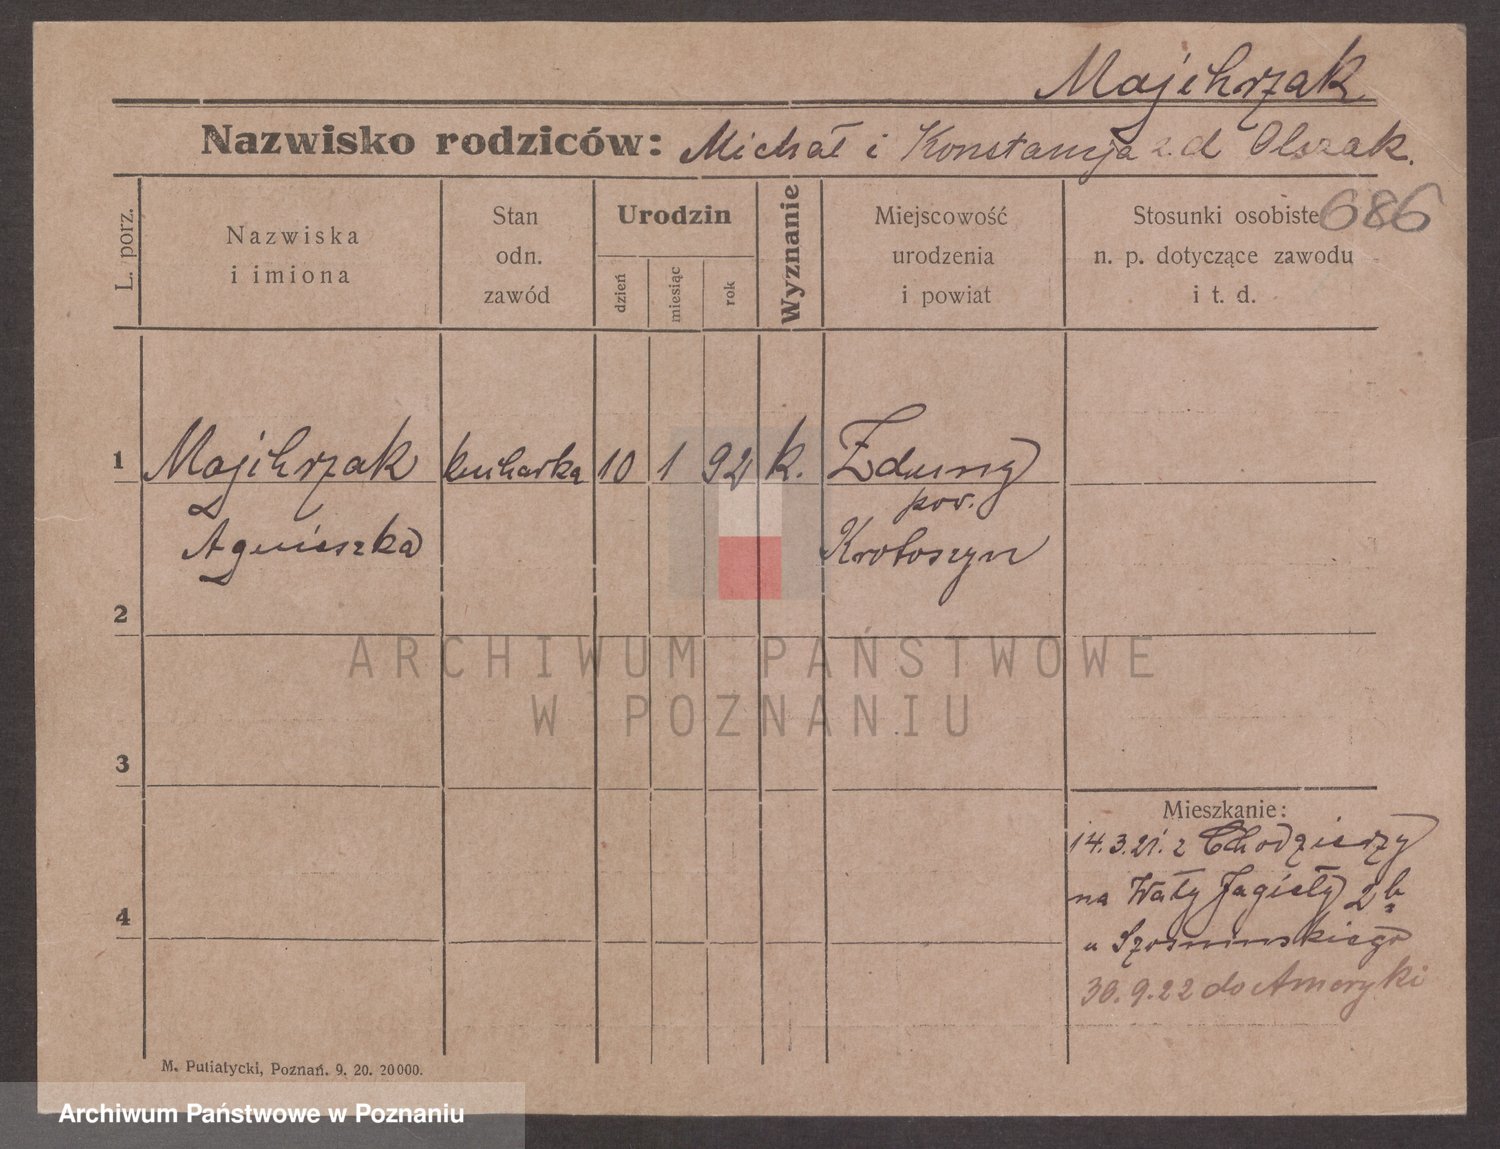 Majchrzak
Nazwisko rodziców: Michał i Konstancja z d Olszak.
686
L. porz.
Nazwiska
i imiona
Stan
odn.
zawód
Urodzin
dzień
miesiąc
rok
Wyznanie
Miejscowość
urodzenia
i powiat
Stosunki osobiste
n. p. dotyczące zawodu
i t. d.
1 Majchrzak kucharka 10 1 92 k. Zduny
pow.
Agnieszka Krotoszyn
2
ARCHIWUM PAŃSTWOWE
W POZNANIU
3
Mieszkanie:
14.3.21. z Chodzieży
na Wały Jagiełły 2b
4
u
30.9.22 do Ameryki
M. Putiatycki, Poznań. 9. 20. 20000.
Archiwum Państwowe w Poznaniu